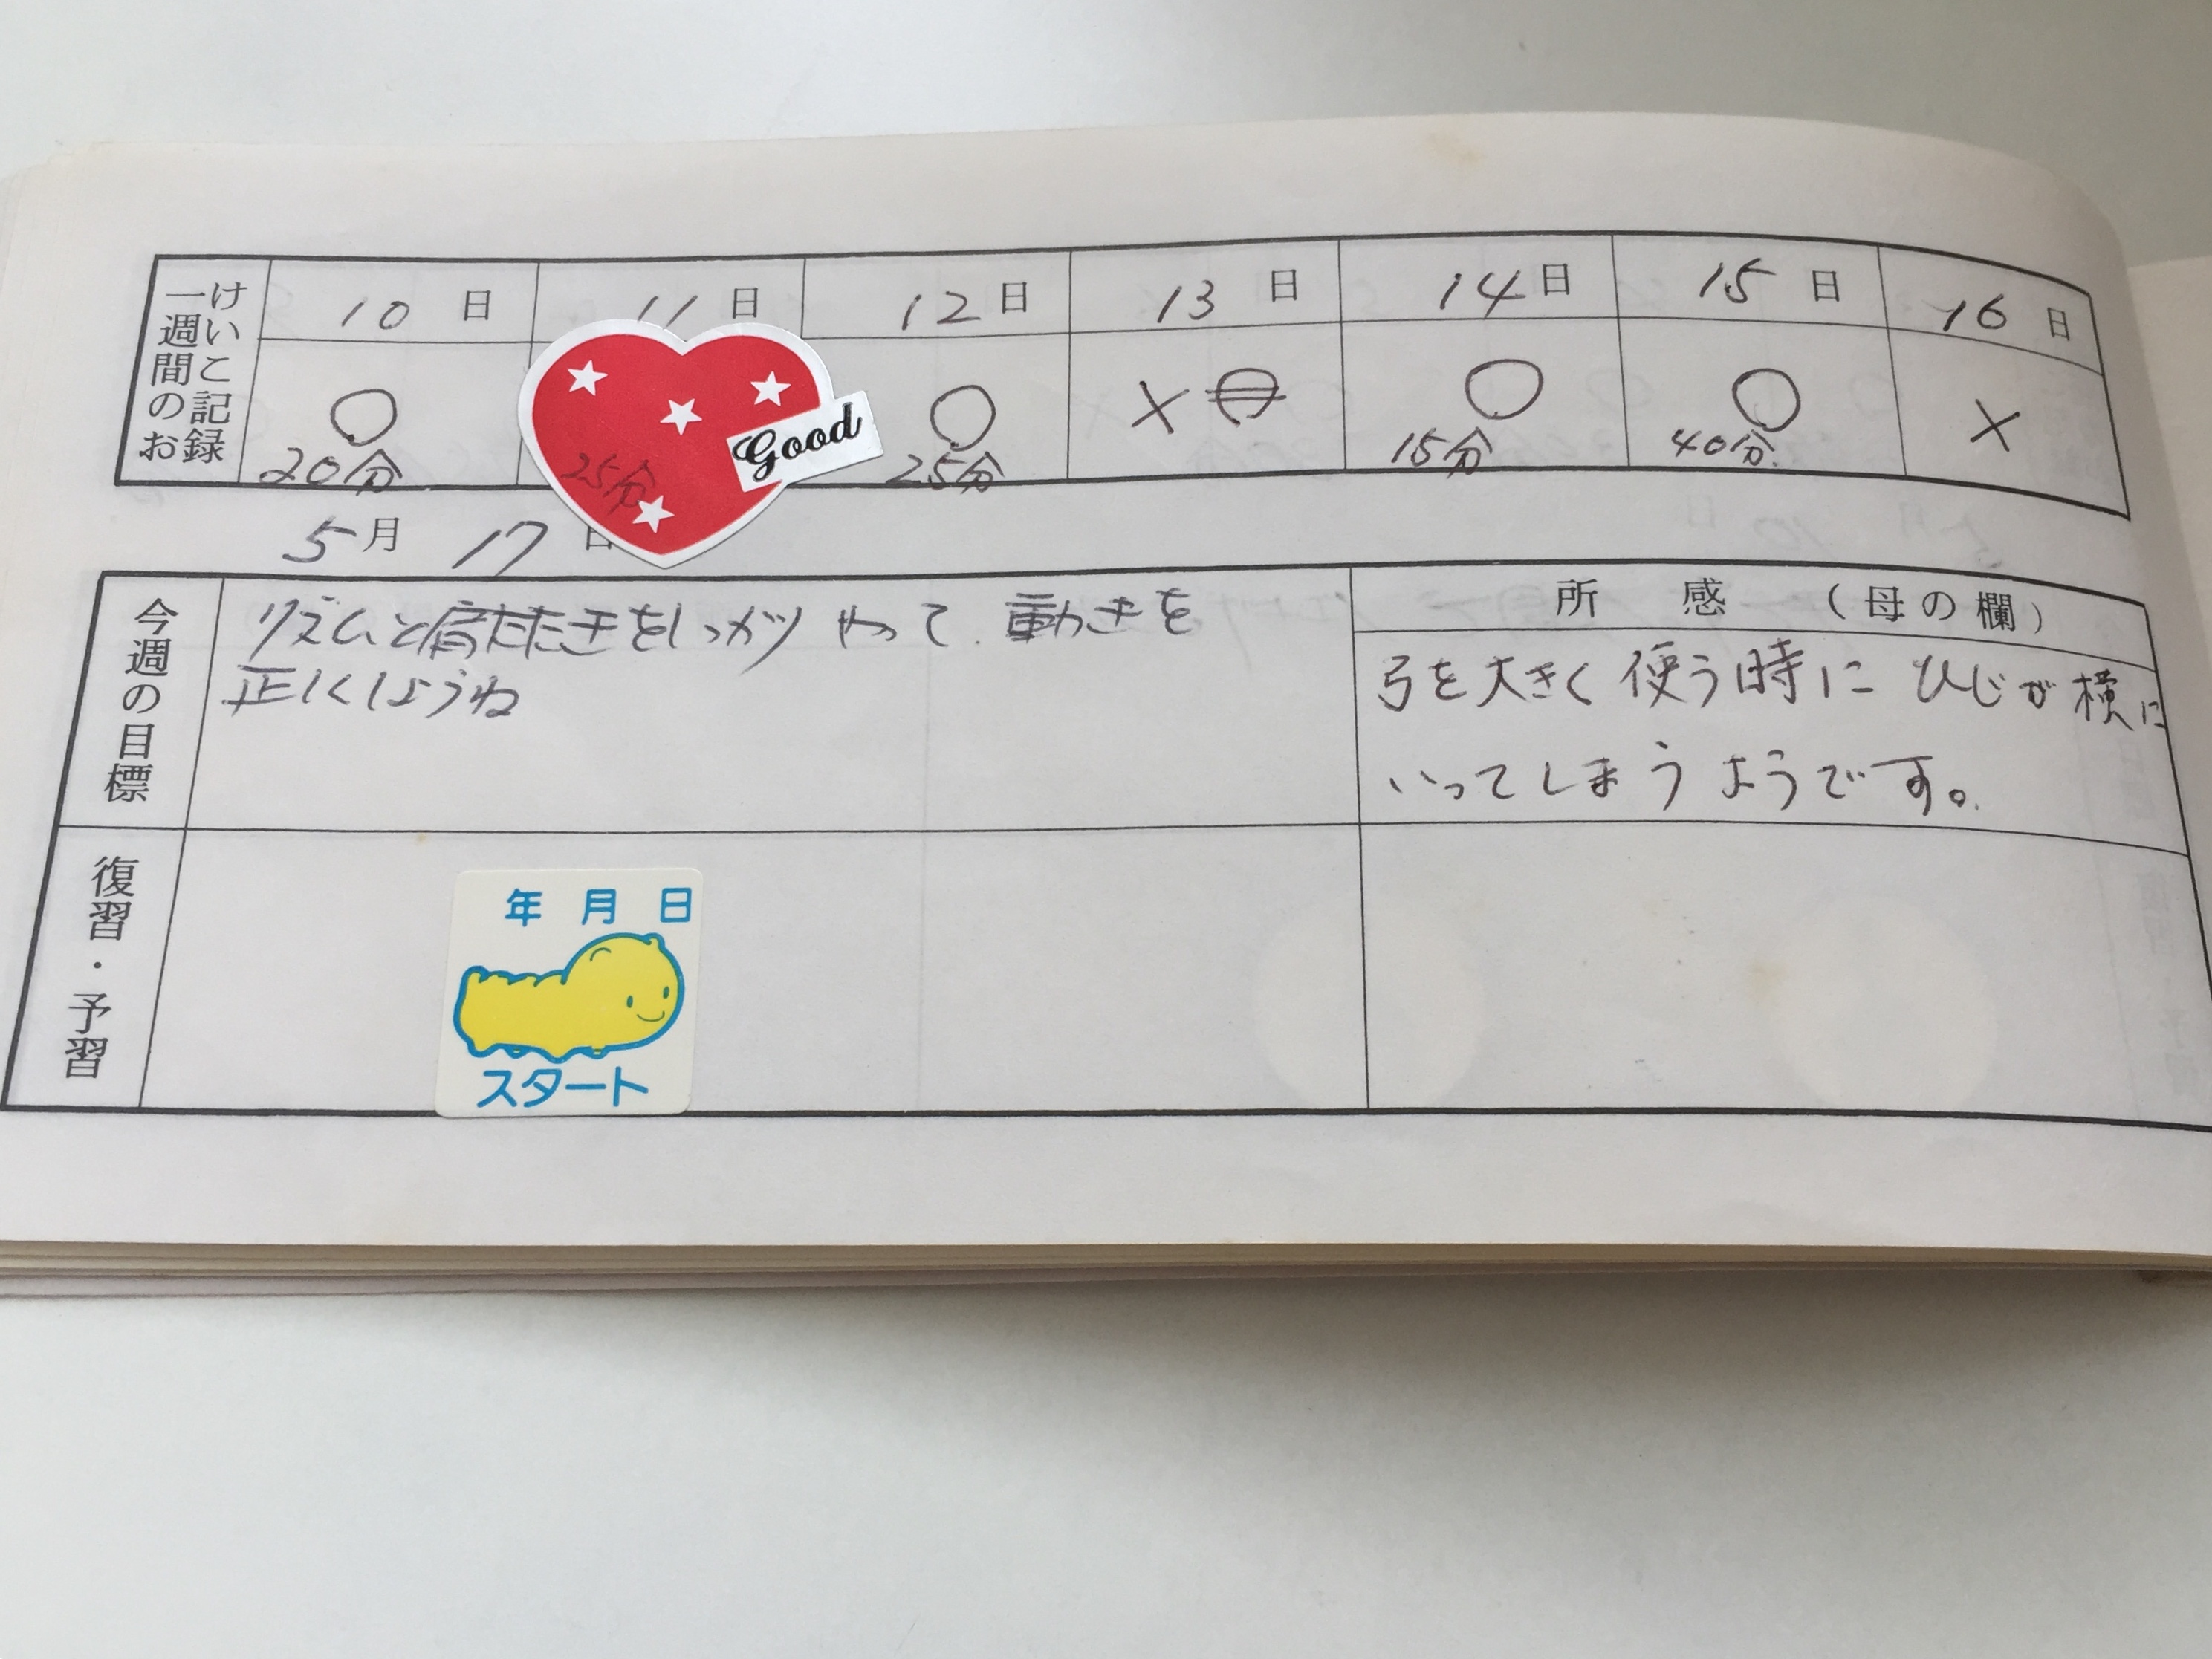 一週間のお
けいこ記録
10日 11日 12日 13日 14日 15日 16日
○ ○ × ○ ○ ×
20分 25分 25分 15分 40分
Good
5月 17日
今週の目標
リズムと肩たたきをしっかりやって、動きを
正しくしようね
所感（母の欄）
弓を大きく使う時にひじが横に
いってしまうようです。
復習・予習
年 月 日
スタート